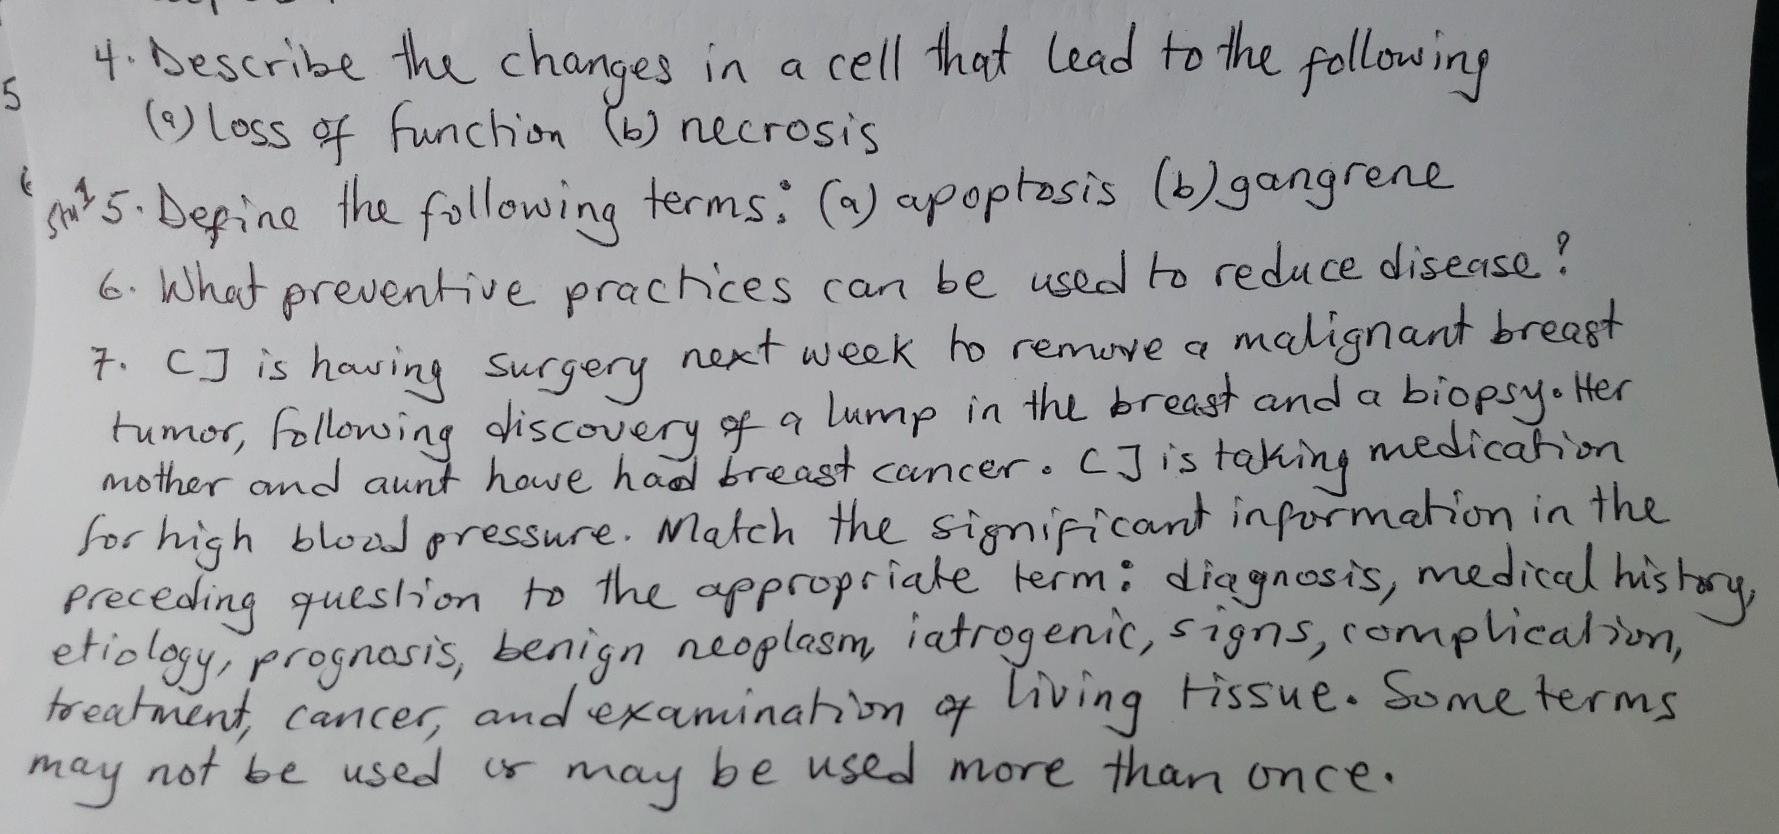 4. Describe the changes in a cell that lead to the following
5
(a) loss of function (b) necrosis
5. Define the following terms: (a) apoptosis (b) gangrene
6. What preventive practices can be used to reduce disease?
7. CJ is having surgery next week to remove a malignant breast
tumor, following discovery of a lump in the breast and a biopsy. Her
mother and aunt have had breast cancer. CJ is taking medication
for high blood pressure. Match the significant information in the
preceding question to the appropriate term: diagnosis, medical history,
etiology, prognosis, benign neoplasm, iatrogenic, signs, complication,
treatment, cancer, and examination of living tissue. Some terms
may not be used or may be used more than once.